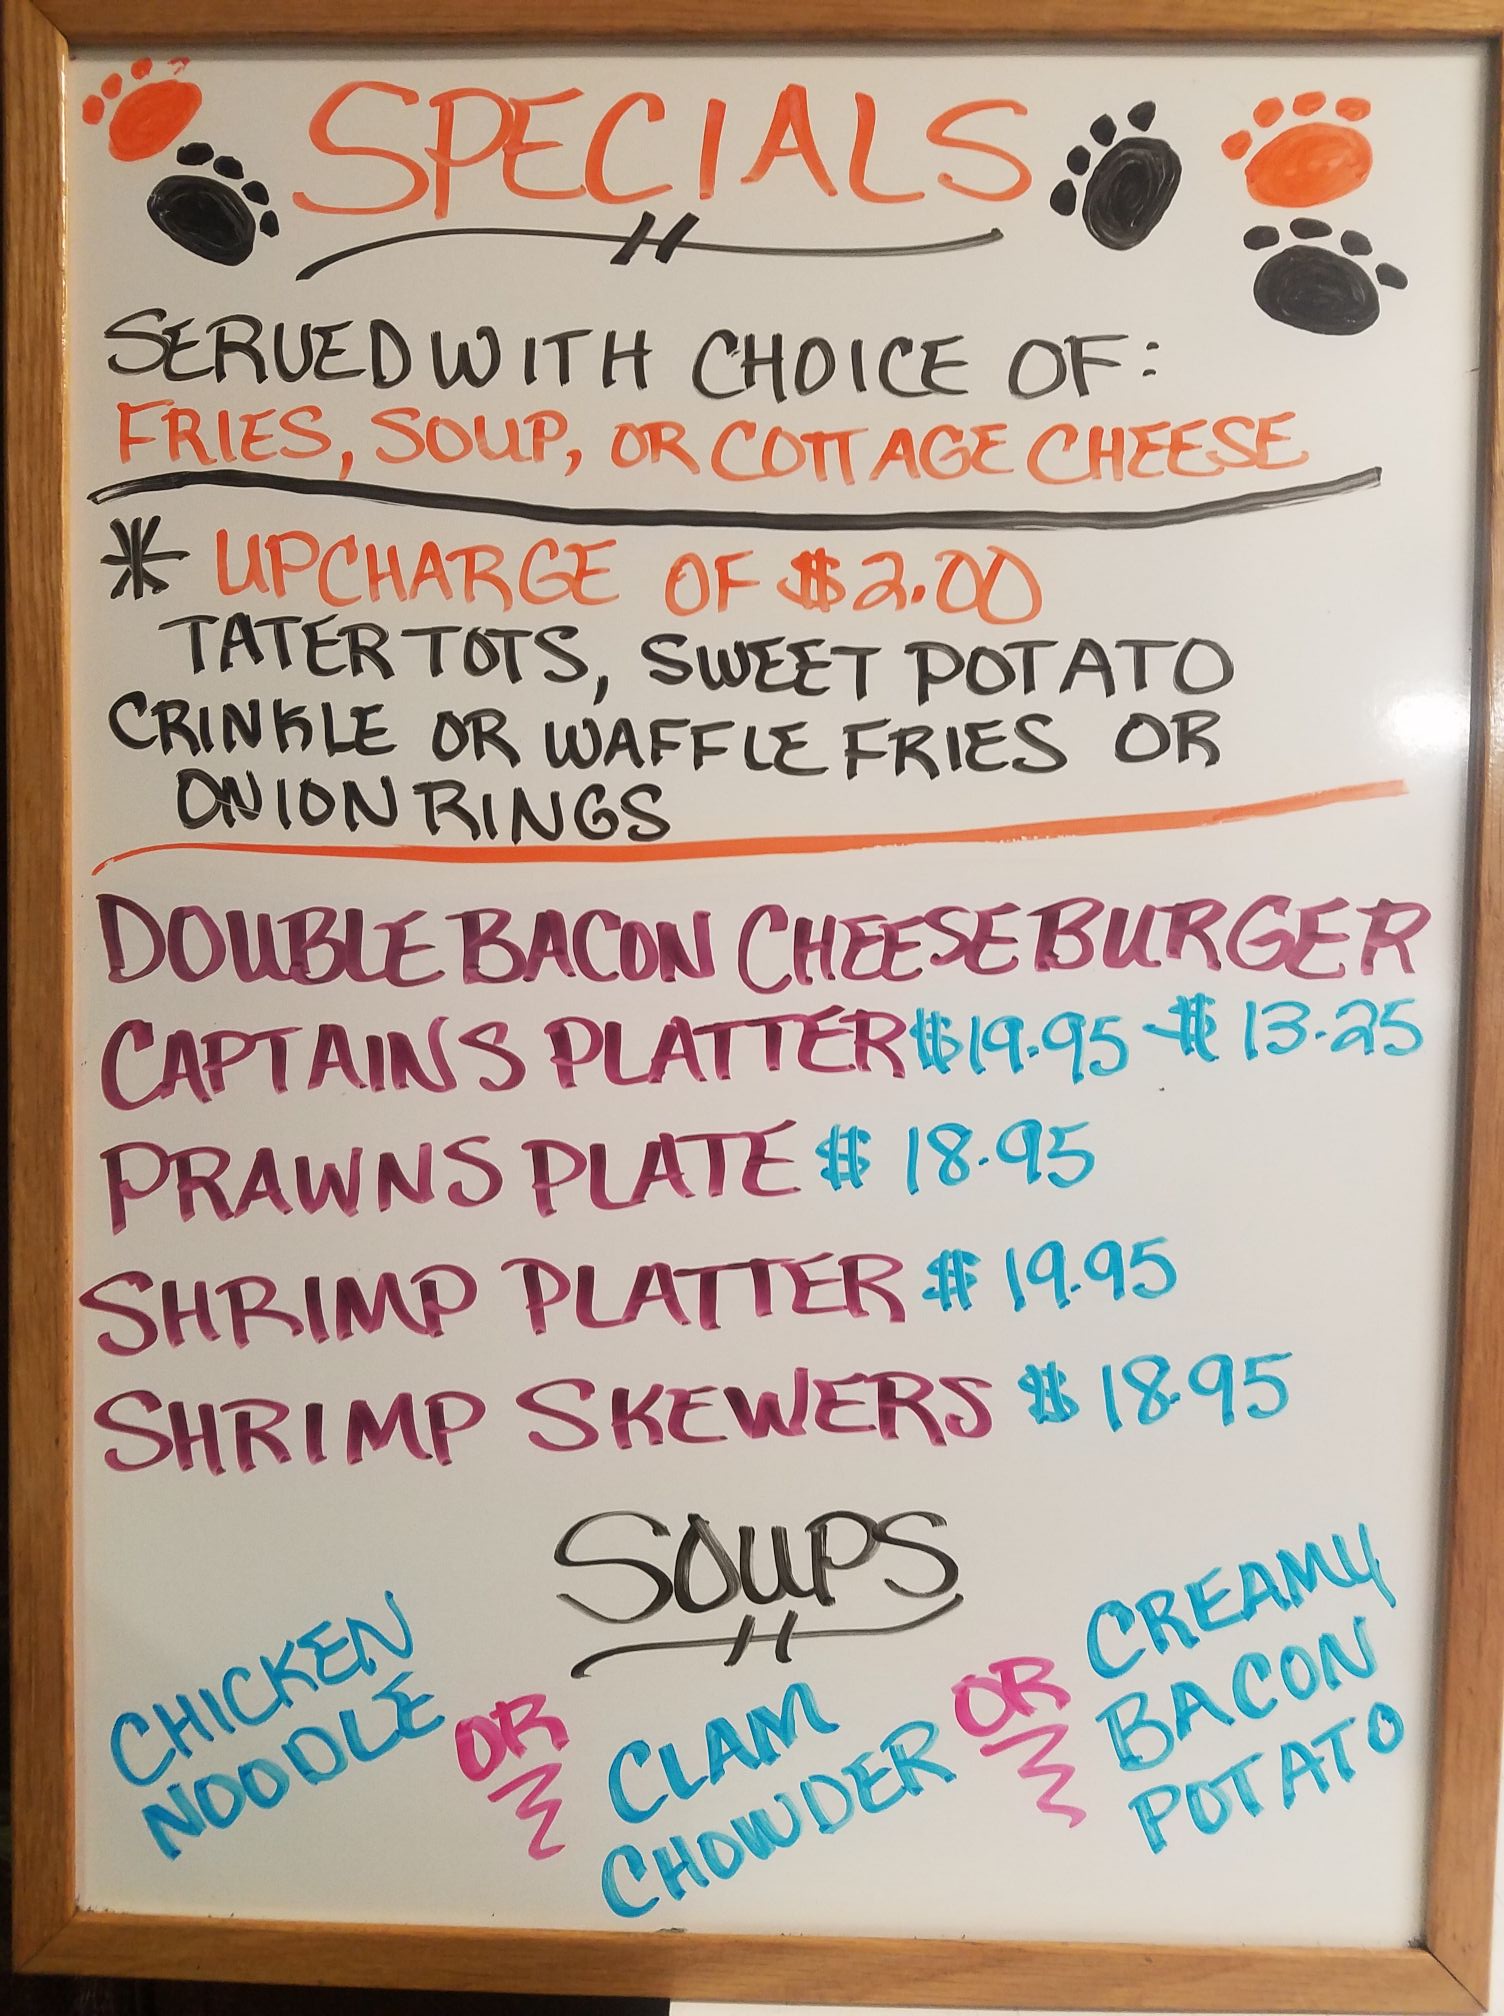 SPECIALS
SERVED WITH CHOICE OF:
FRIES, SOUP, OR COTTAGE CHEESE
* UPCHARGE OF $2.00
TATER TOTS, SWEET POTATO
CRINKLE OR WAFFLE FRIES OR
ONION RINGS
DOUBLE BACON CHEESEBURGER
- $13.25
CAPTAINS PLATTER $19.95
PRAWNS PLATE $18.95
SHRIMP PLATTER $19.95
SHRIMP SKEWERS $18.95
SOUPS
CHICKEN
NOODLE
OR
CLAM
CHOWDER
OR
CREAMY
BACON
POTATO